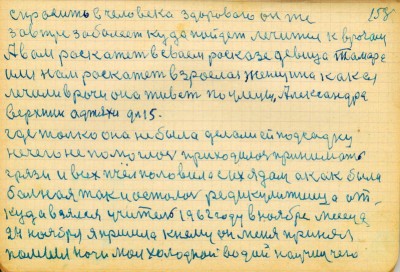 158
спросить в человека здорового он же
завтре заболеет куда пойдет лечится к врочам
А вам раскажет в своем расказе девица Тамаре
или нам раскажет взрослая женщина как ея
лечили врочи она живет по улице Александра
верхния д. 15.
где толко она не была делали ей подсадку
нечего не помогло приходилос принимать
грязи и всех пчёл половила с их ядам а как была
болная так и осталос редикулитница от
куда взялся учитель 1962 году в ноябре месеце
24 ноября я пришла к нему он меня принял
помыл ночи мои холодной водай научил чего